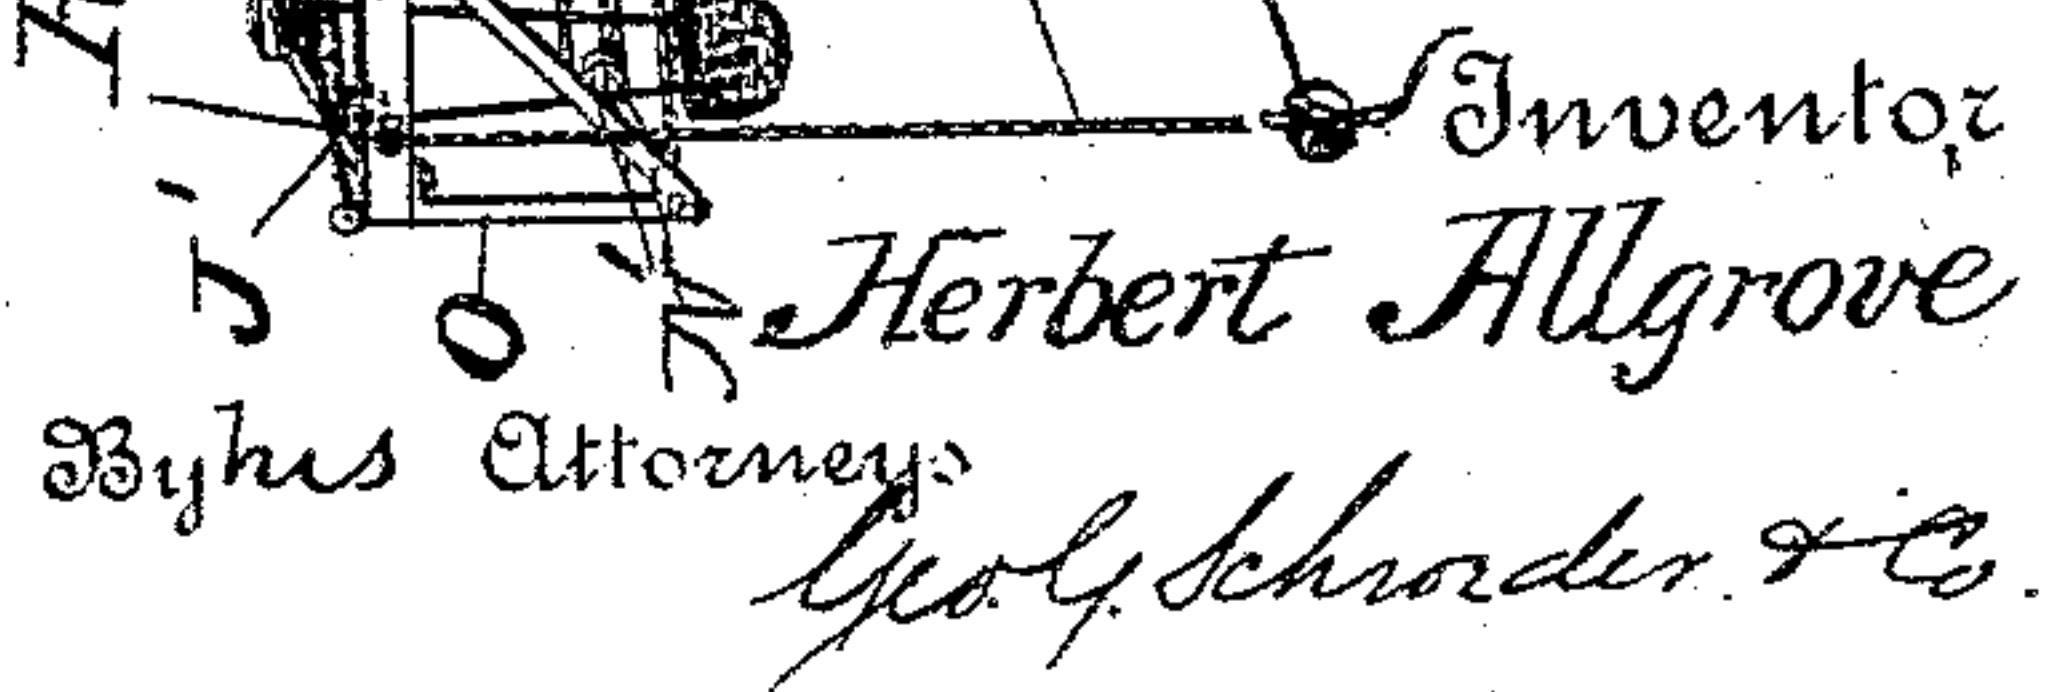 Inventor,
Herbert Allgrove
By his Attorneys
Geo. G. Schroeder & Co.